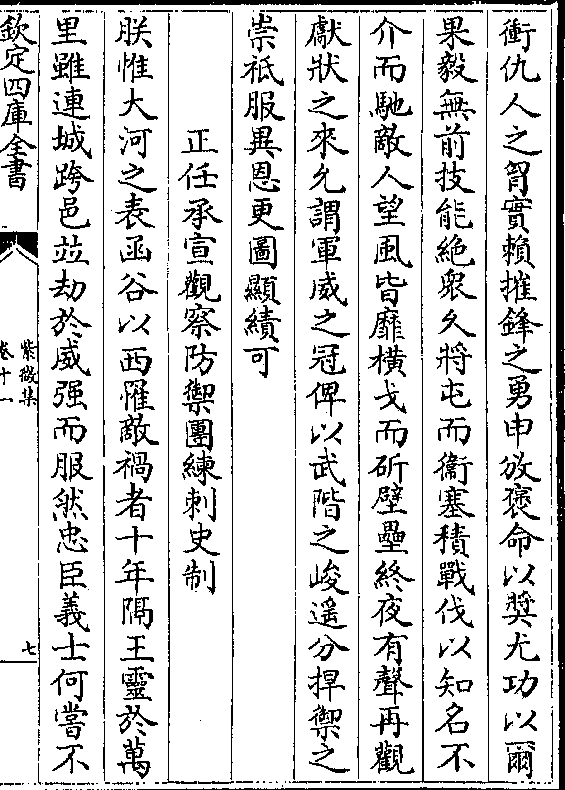 衝仇人之胷實賴摧鋒之勇申放褒命以奨尤功以爾
果毅無前技能絶衆久將屯而衞塞積戰伐以知名不
介而馳敵人望風皆靡橫戈而斫壁壘終夜有聲再觀
獻狀之來允謂軍威之冠俾以武階之峻遥分捍禦之
崇祇服異恩更圖顯績可
正任承宣觀察防禦團練刺史制
朕惟大河之表函谷以西罹敵禍者十年隔王靈於萬
里雖連城跨邑竝劫於威强而服然忠臣義士何嘗不
欽定四庫全書
紫微集
卷十一
七